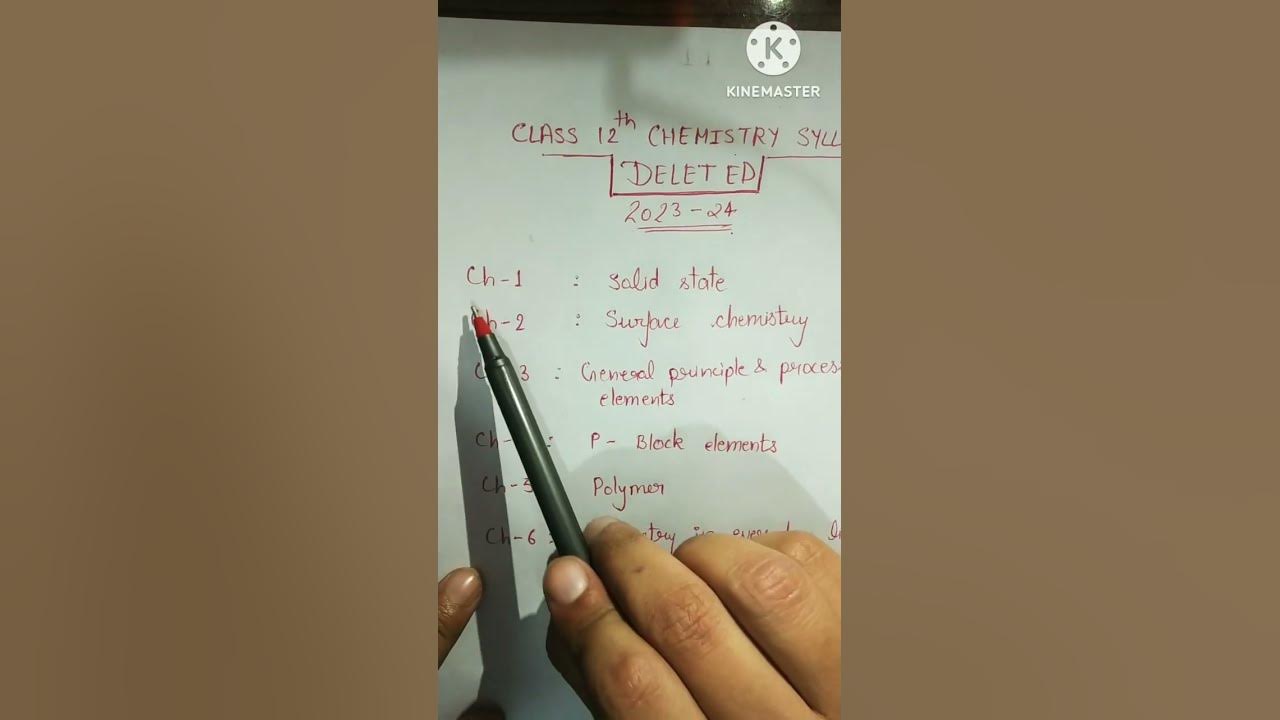 KINEMASTER
CLASS 12th CHEMISTRY SYLL
DELETED
2023-24
Ch-1 : Solid state
Ch-2 : Surface chemistry
3 : General principle & proces
elements
Ch- : P- Block elements
Ch-5 Polymer
Ch-6 :